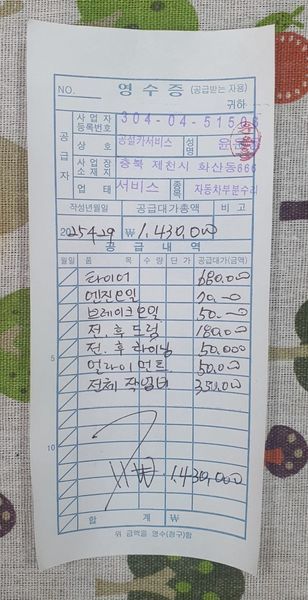 NO.
영 수 증 (공급받는 자용)
귀하
공급자
사업자등록번호 304-04-515
상호 공설카서비스 성명 윤
사업장소재지 충북 제천시 화산동666
업태 서비스 종목 자동차부분수리
작성년월일 공급대가총액 비고
2025 4 29 ₩ 1,430,000
공 급 내 역
월일 품목 수량 단가 공급대가(금액)
타이어 680,000
엔진오일 70,-00
브레이크오일 50,-00
전.후 드럼 180,000
전.후 라이닝 50,000
얼라이먼트 50,000
전체 작업비 350,000
5
10
₩ 1,430,000
합 계 ₩
위 금액을 영수(청구)함